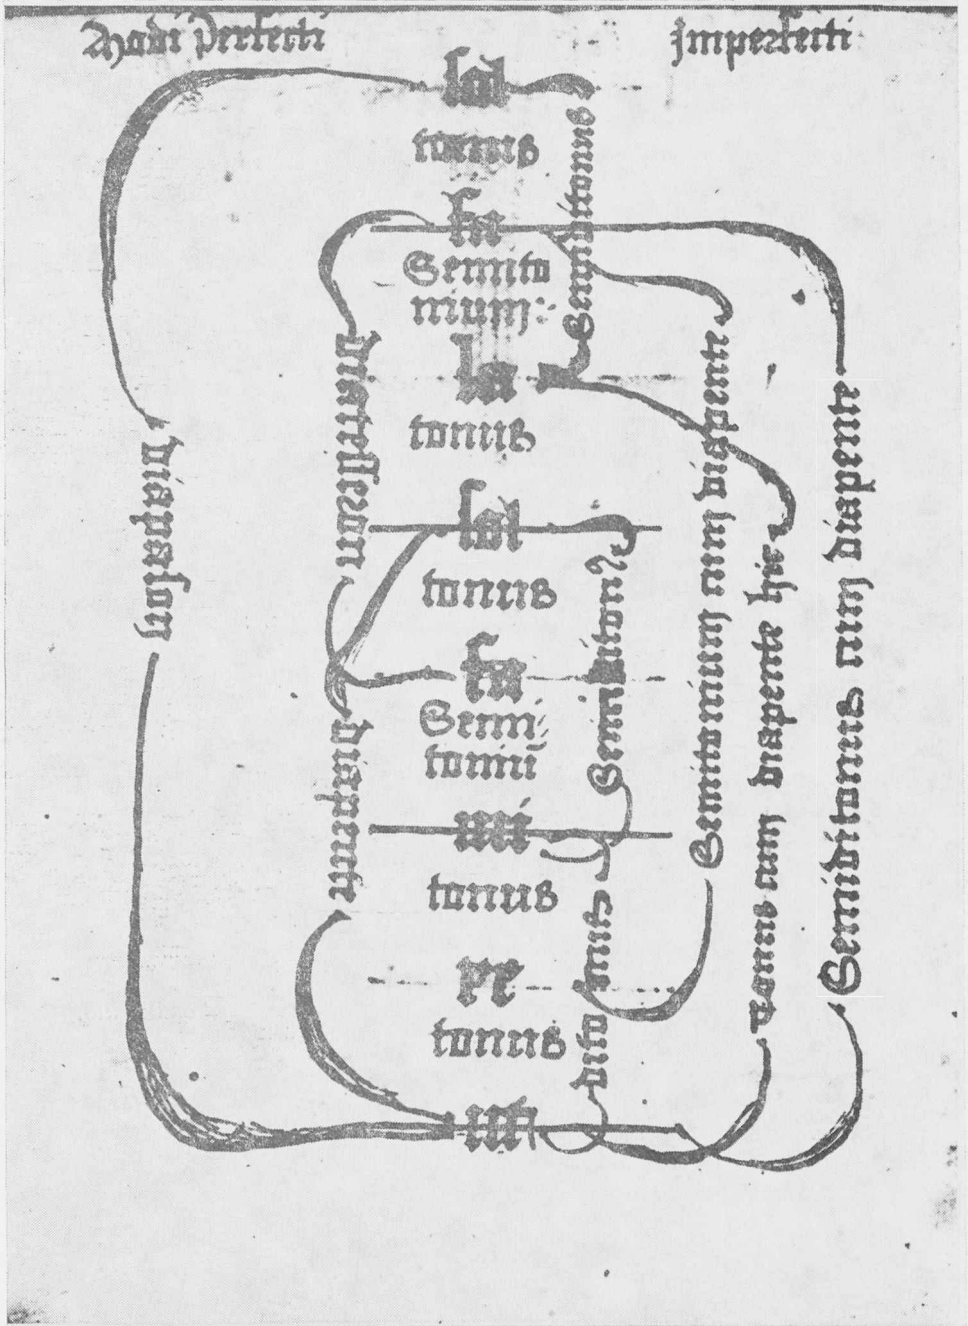 Modi Perfecti
Imperfecti
sol
tonus
fa
Semito
nium:
la
tonus
sol
tonus
fa
Semi
toniū
mi
tonus
re
tonus
ut
diapason
diatesseron
diapente
Semiditonus
Semiditonꝰ
ditonus
Semitonium cum diapente
tonus cum diapente hic
Semiditonus cum diapente